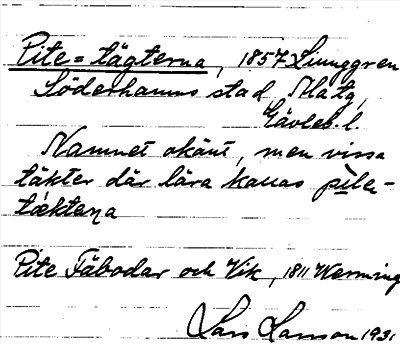 Pite=tägterna, 1857 Ljunggren
Söderhamns stad, Matg,
Gävleb. l.
Namnet okänt, men vissa
täkter där lära kallas pite-
täkterna
Pite Fäbodar och Vik, 1811 Wenning
Lars Larsson 1931